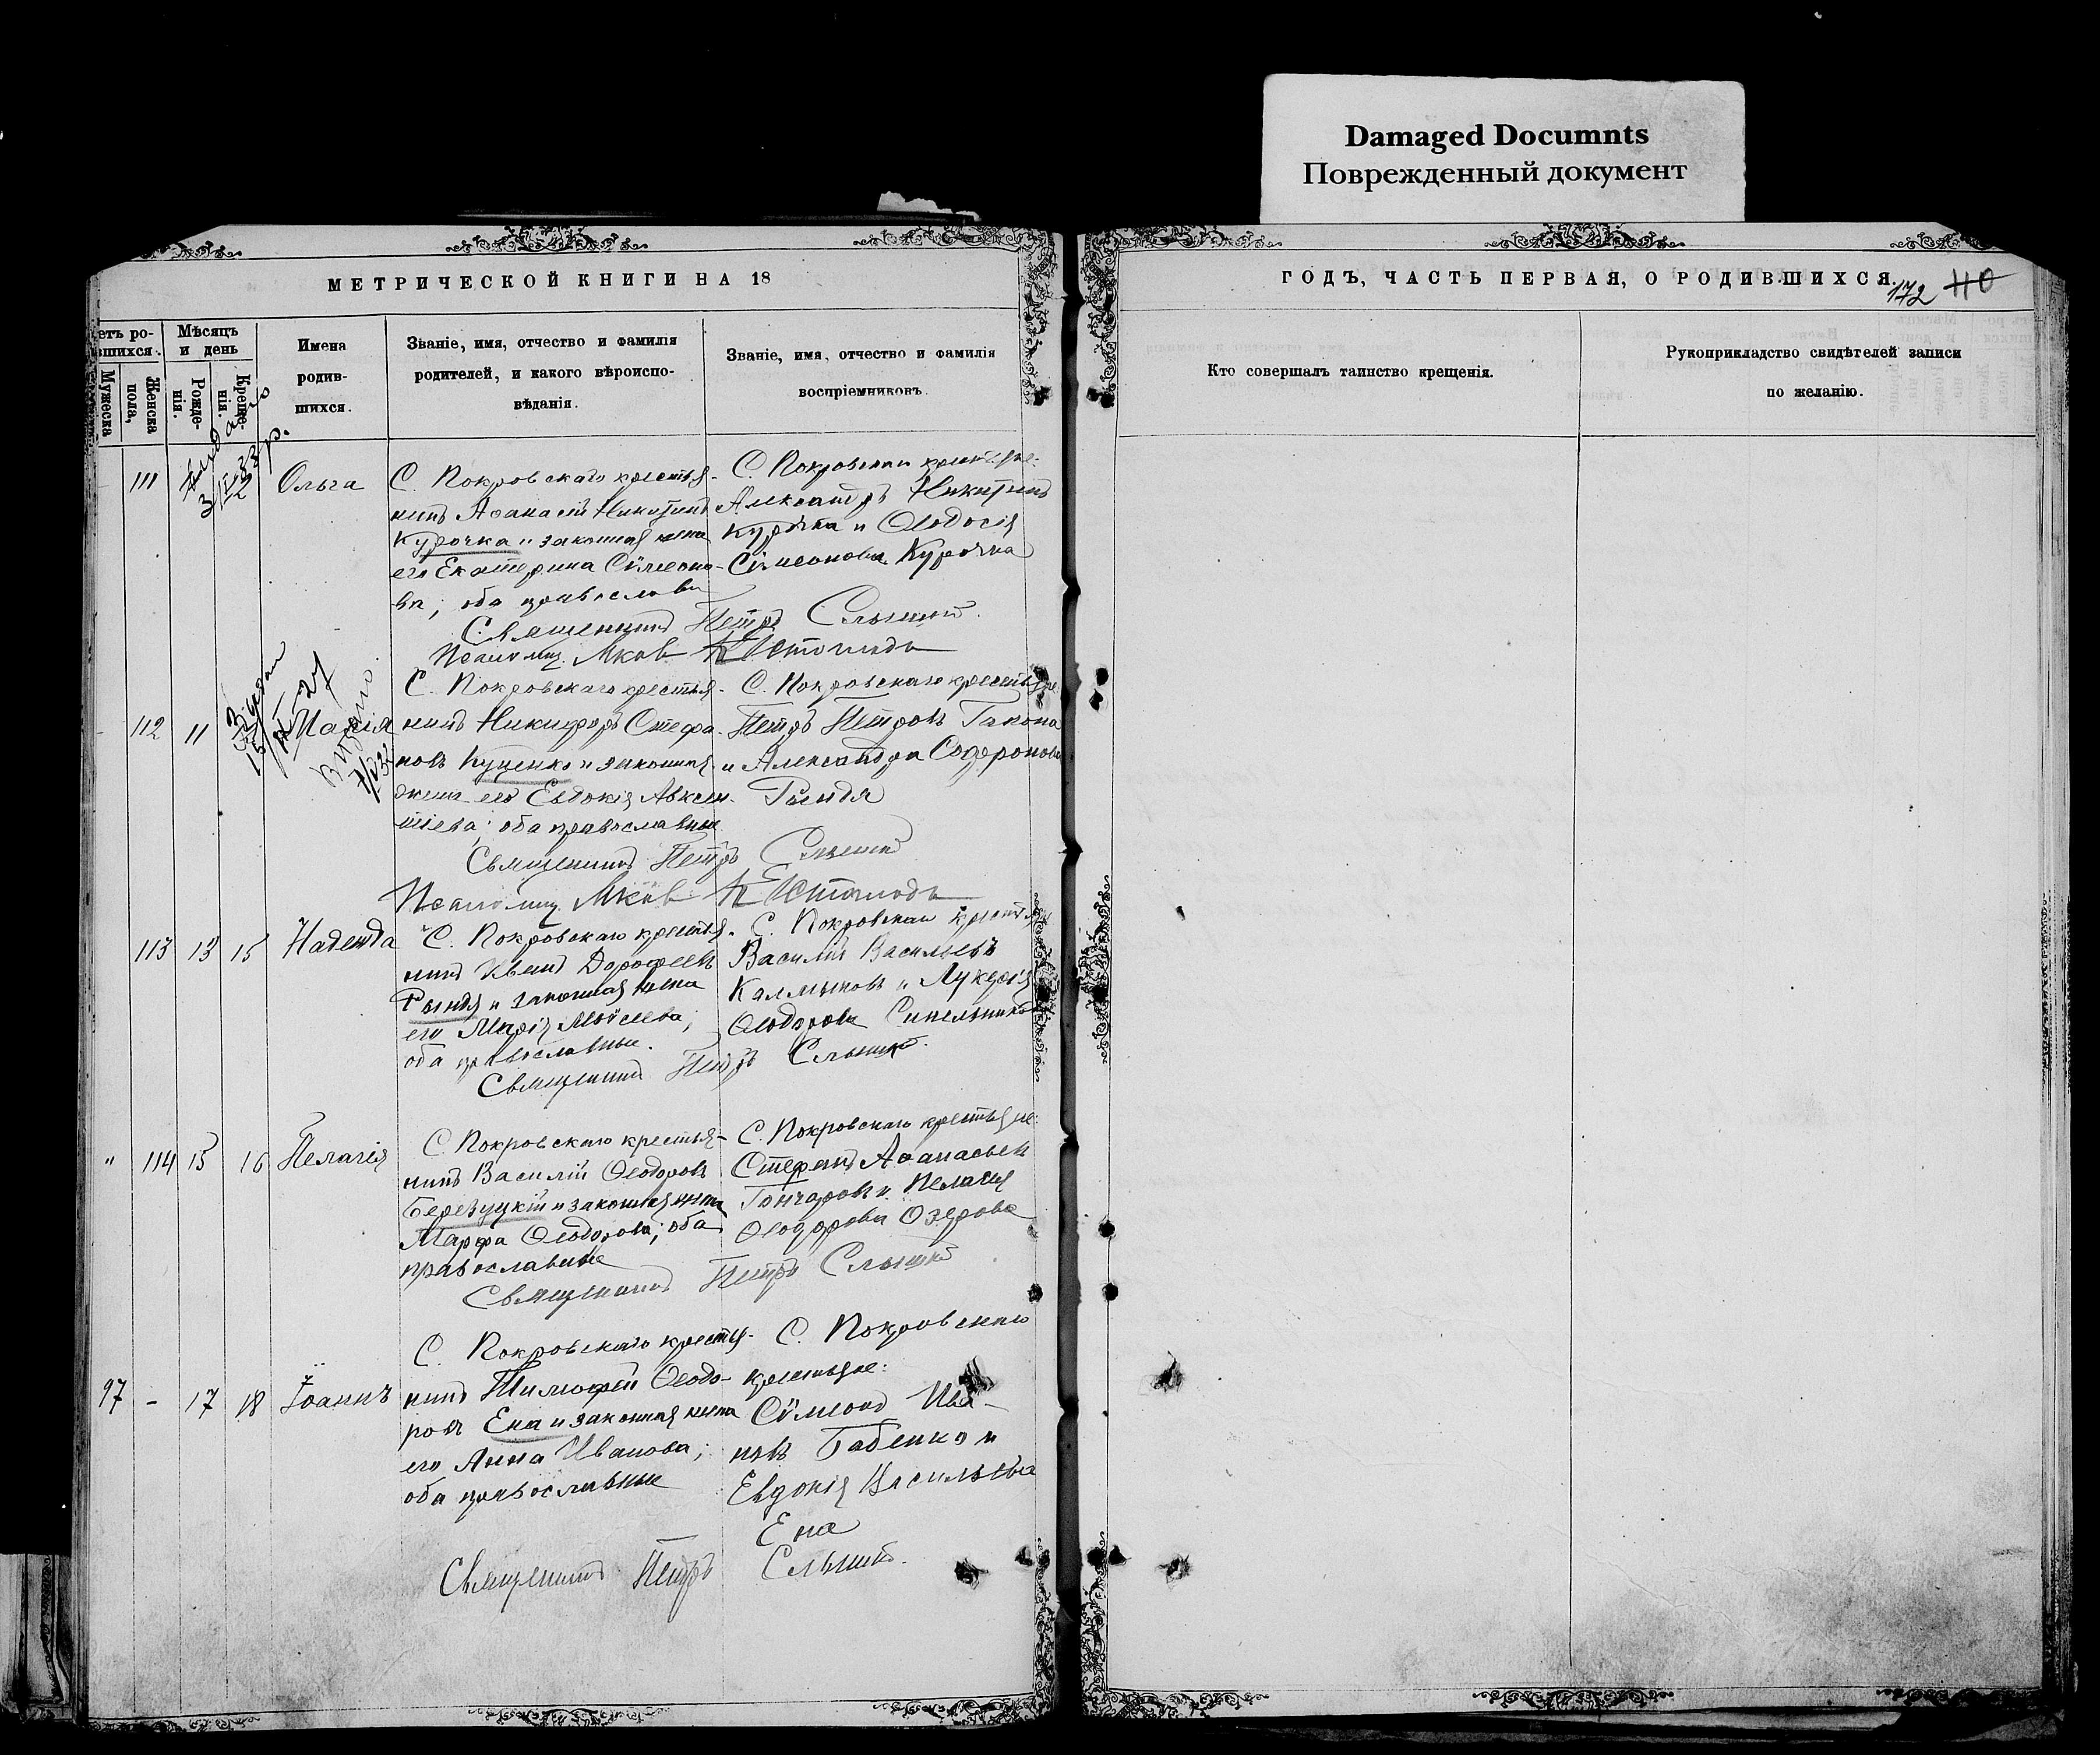 Damaged Documnts
Поврежденный документ
МЕТРИЧЕСКОЙ КНИГИ НА 18
ГОДЪ, ЧАСТЬ ПЕРВАЯ, О РОДИВШИХСЯ.
172 110
етъ ро-
вшихся.
Мужеска
Женска
пола,
Мѣсяцъ
и день
Рожде-
нія.
Креще-
нія.
Имена
родив-
шихся.
Званіе, имя, отчество и фамилія
родителей, и какого вѣроиспо-
вѣданія.
Званіе, имя, отчество и фамилія
воспріемниковъ.
Кто совершалъ таинство крещенія.
Рукоприкладство свидѣтелей записи
по желанію.
111
Ольга
С. Покровскаго крестья-
нинъ Аѳанасій Никитинъ
Курочка и законная жена
его Екатерина Сѵмеоно-
ва; оба православн
С. Покровскаго крестьяне:
Александръ Никитинъ
Курочка и Ѳеодосія
Сѵмеонова Курочка
Священникъ Петръ
Псаломщ. Яков
112 11
Марія
С. Покровскаго крестья-
нинъ Никифоръ Стефа-
новъ Куценко и законная
жена его Евдокія Авксен-
тіева; оба православные
С. Покровскаго крестьяне
Петръ Петровъ
и Александра Софронова
Рындя
Священникъ Петръ
Псаломщ. Яков
113 13 15 Надежда
С. Покровскаго крестья-
нинъ Дорофеевъ
Рындя и законная жена
его Марія Моѵсеева;
оба православные.
С. Покровскаго крестьяне
Василій Васильевъ
Калмыковъ и Лукерія
Ѳеодорова Синельникова
Священникъ Петръ
" 114 15 16 Пелагія
С. Покровскаго крестья-
нинъ Василій Ѳеодоровъ
Березуцкій и законная жена
Марфа Ѳеодорова; оба
православные
С. Покровскаго крестьяне:
Стефанъ Аѳанасьевъ
Гончаровъ и Пелагія
Ѳеодорова Озерова
Священникъ Петръ
97 - 17 18 Іоаннъ
С. Покровскаго крестья-
нинъ Тимофей Ѳеодо-
ровъ Ена и законная жена
его Анна Иванова;
оба православные
С. Покровскаго
крестьяне:
Сѵмеонъ Ива-
новъ Бабенко и
Евдокія Васильева
Ена
Священникъ Петръ